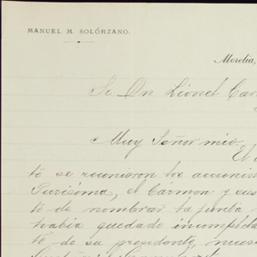 MANUEL M. SOLÓRZANO.
Morelia,
Sr Dn Lionel Car
Muy Señor mio,
El
to se reunieron los accionis
Purisima, el Carmen y sus
to de nombrar la junta
habia quedado incompleta
to de su presidente, nues